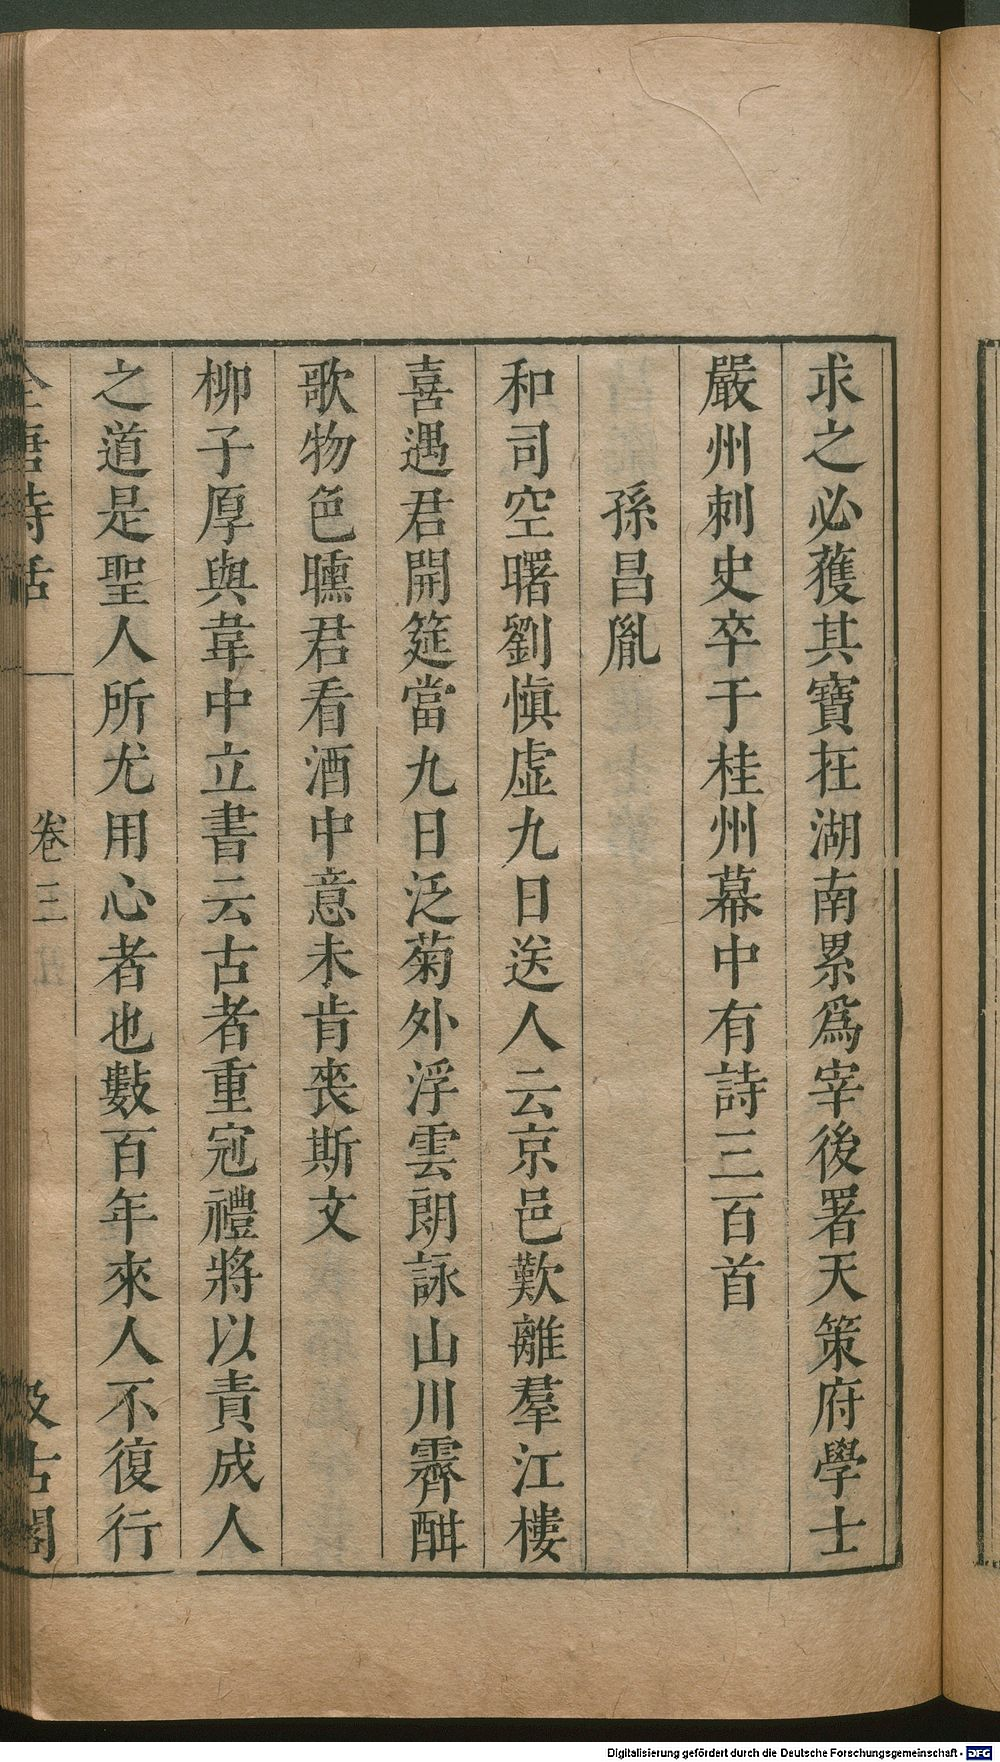 求之必獲其寶在湖南累爲宰後署天策府學士
嚴州刺史卒于桂州幕中有詩三百首
孫昌胤
和司空曙劉愼虛九日送人云京邑歎離羣江樓
喜遇君開筵當九日泛菊外浮雲朗詠山川霽酣
歌物色曛君看酒中意未肯喪斯文
柳子厚與韋中立書云古者重冠禮將以責成人
之道是聖人所尤用心者也數百年來人不復行
全唐詩話
卷三
汲古閣
Digitalisierung gefördert durch die Deutsche Forschungsgemeinschaft - DFG